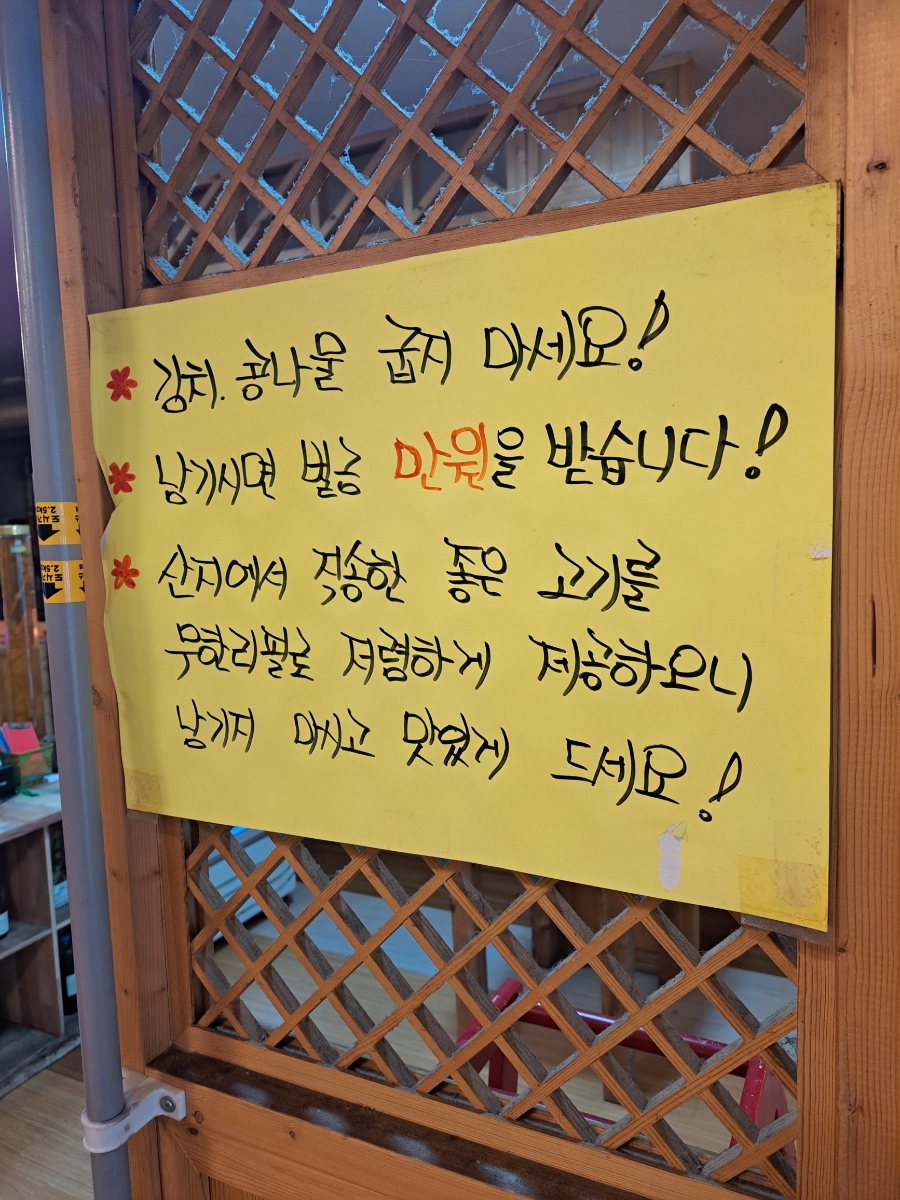 * 김치. 콩나물 굽지 마세요!
* 남기시면 벌금 만원을 받습니다!
* 산지에서 직송한 좋은 고기를
무한리필로 저렴하게 제공하오니
남기지 마시고 맛있게 드세요!
2.5kg
2.5kg